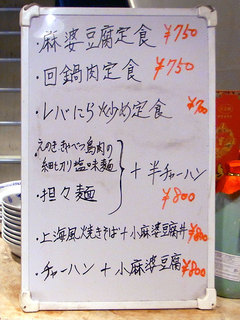 ・麻婆豆腐定食 ¥750
・回鍋肉定食 ¥750
・レバにら炒め定食
えのきキャベツ鶏肉の
細切り塩味麺
・担々麺
+半チャーハン
¥800
・上海風焼きそば+小麻婆豆腐丼 ¥800
・チャーハン+小麻婆豆腐 ¥800